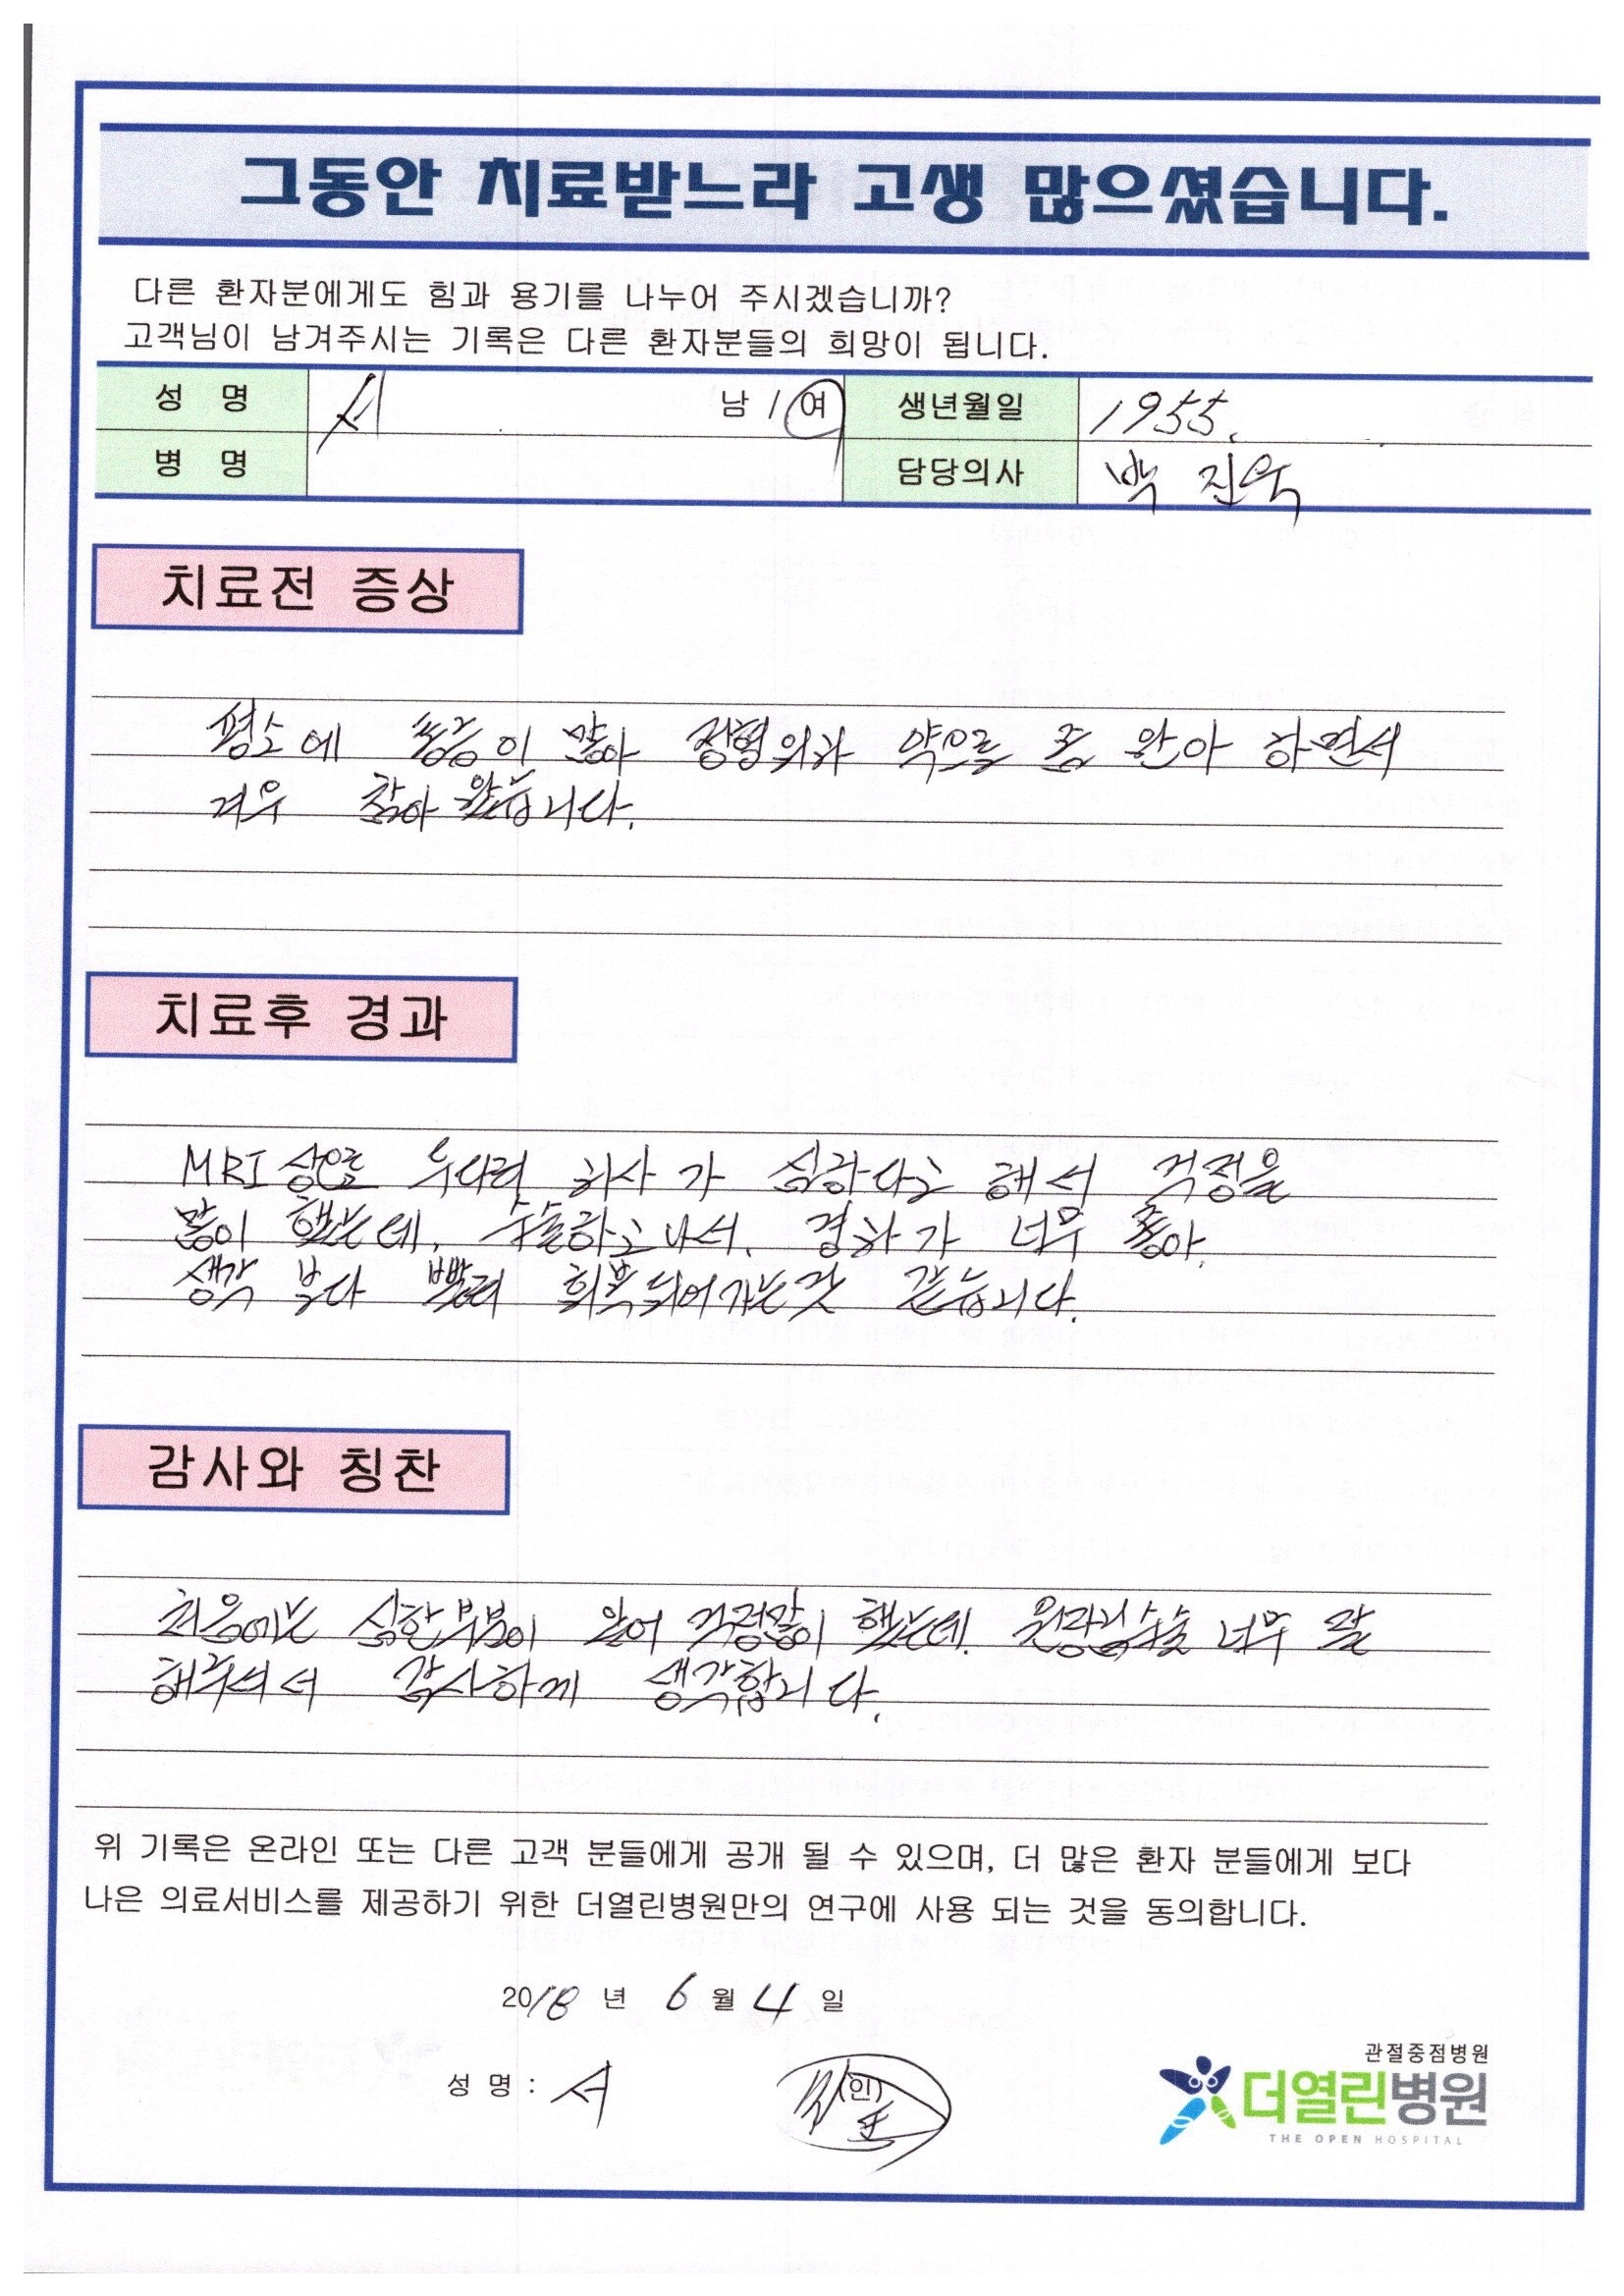 그동안 치료받느라 고생 많으셨습니다.
다른 환자분에게도 힘과 용기를 나누어 주시겠습니까?
고객님이 남겨주시는 기록은 다른 환자분들의 희망이 됩니다.
성 명 서 남 / 여 생년월일 1955.
병 명 담당의사 박 진욱
치료전 증상
평소에 통증이 많아 정형외과 약으로 좀 완아 하면서
겨우 찾아 왔습니다.
치료후 경과
MRI상으로 두다리 하사가 심하다고 해서 걱정을
많이 했는데, 수술하고나서, 경하가 너무 좋아,
생각 보다 빨리 회복되어가는것 같습니다.
감사와 칭찬
처음에는 심한부분이 있어 걱정많이 했는데. 원장님수술 너무 잘
해주셔서 감사하게 생각합니다.
위 기록은 온라인 또는 다른 고객 분들에게 공개 될 수 있으며, 더 많은 환자 분들에게 보다
나은 의료서비스를 제공하기 위한 더열린병원만의 연구에 사용 되는 것을 동의합니다.
2018 년 6 월 4 일
성 명 : 서 (인)
관절중점병원
더열린병원
THE OPEN HOSPITAL